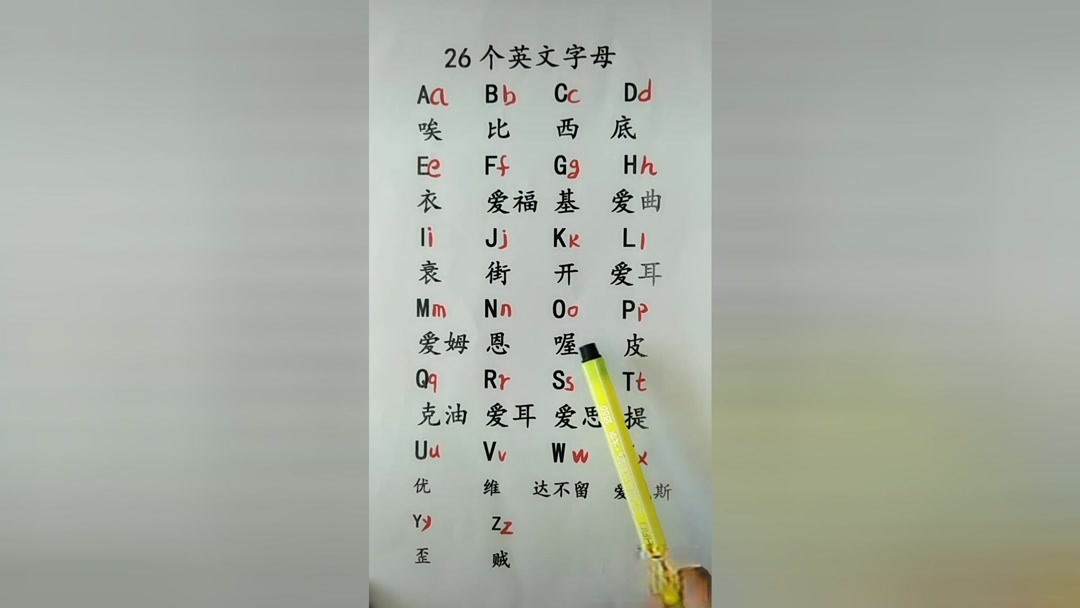 26个英文字母
Aa Bb Cc Dd
唉 比 西 底
Ee Ff Gg Hh
衣 爱福 基 爱曲
Ii Jj Kk Ll
衰 街 开 爱耳
Mm Nn Oo Pp
爱姆 恩 喔 皮
Qq Rr Ss Tt
克油 爱耳 爱思 提
Uu Vv Ww x
优 维 达不留 爱 斯
Yy Zz
歪 贼